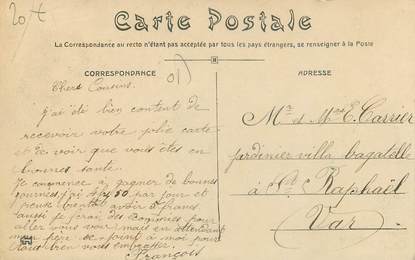 20 f
Carte Postale
La Correspondance au recto n'étant pas acceptée par tous les pays étrangers, se renseigner à la Poste
CORRESPONDANCE
01)
ADRESSE
Chers Cousins.
J'ai été bien content de
recevoir votre jolie carte
et de voir que vous êtes en
bonnes santé.
Je commence a gagner de bonnes
journées j'ai 4f 50 par jour et
peux bientôt avoir 5 francs
aussi je ferai des économies pour
aller vous voir mais en attendant
mon père se joint à moi pour
vous embrasser.
François
Mr et Mme E. Carrier
jardinier villa bagatelle
à St Raphaël
Var